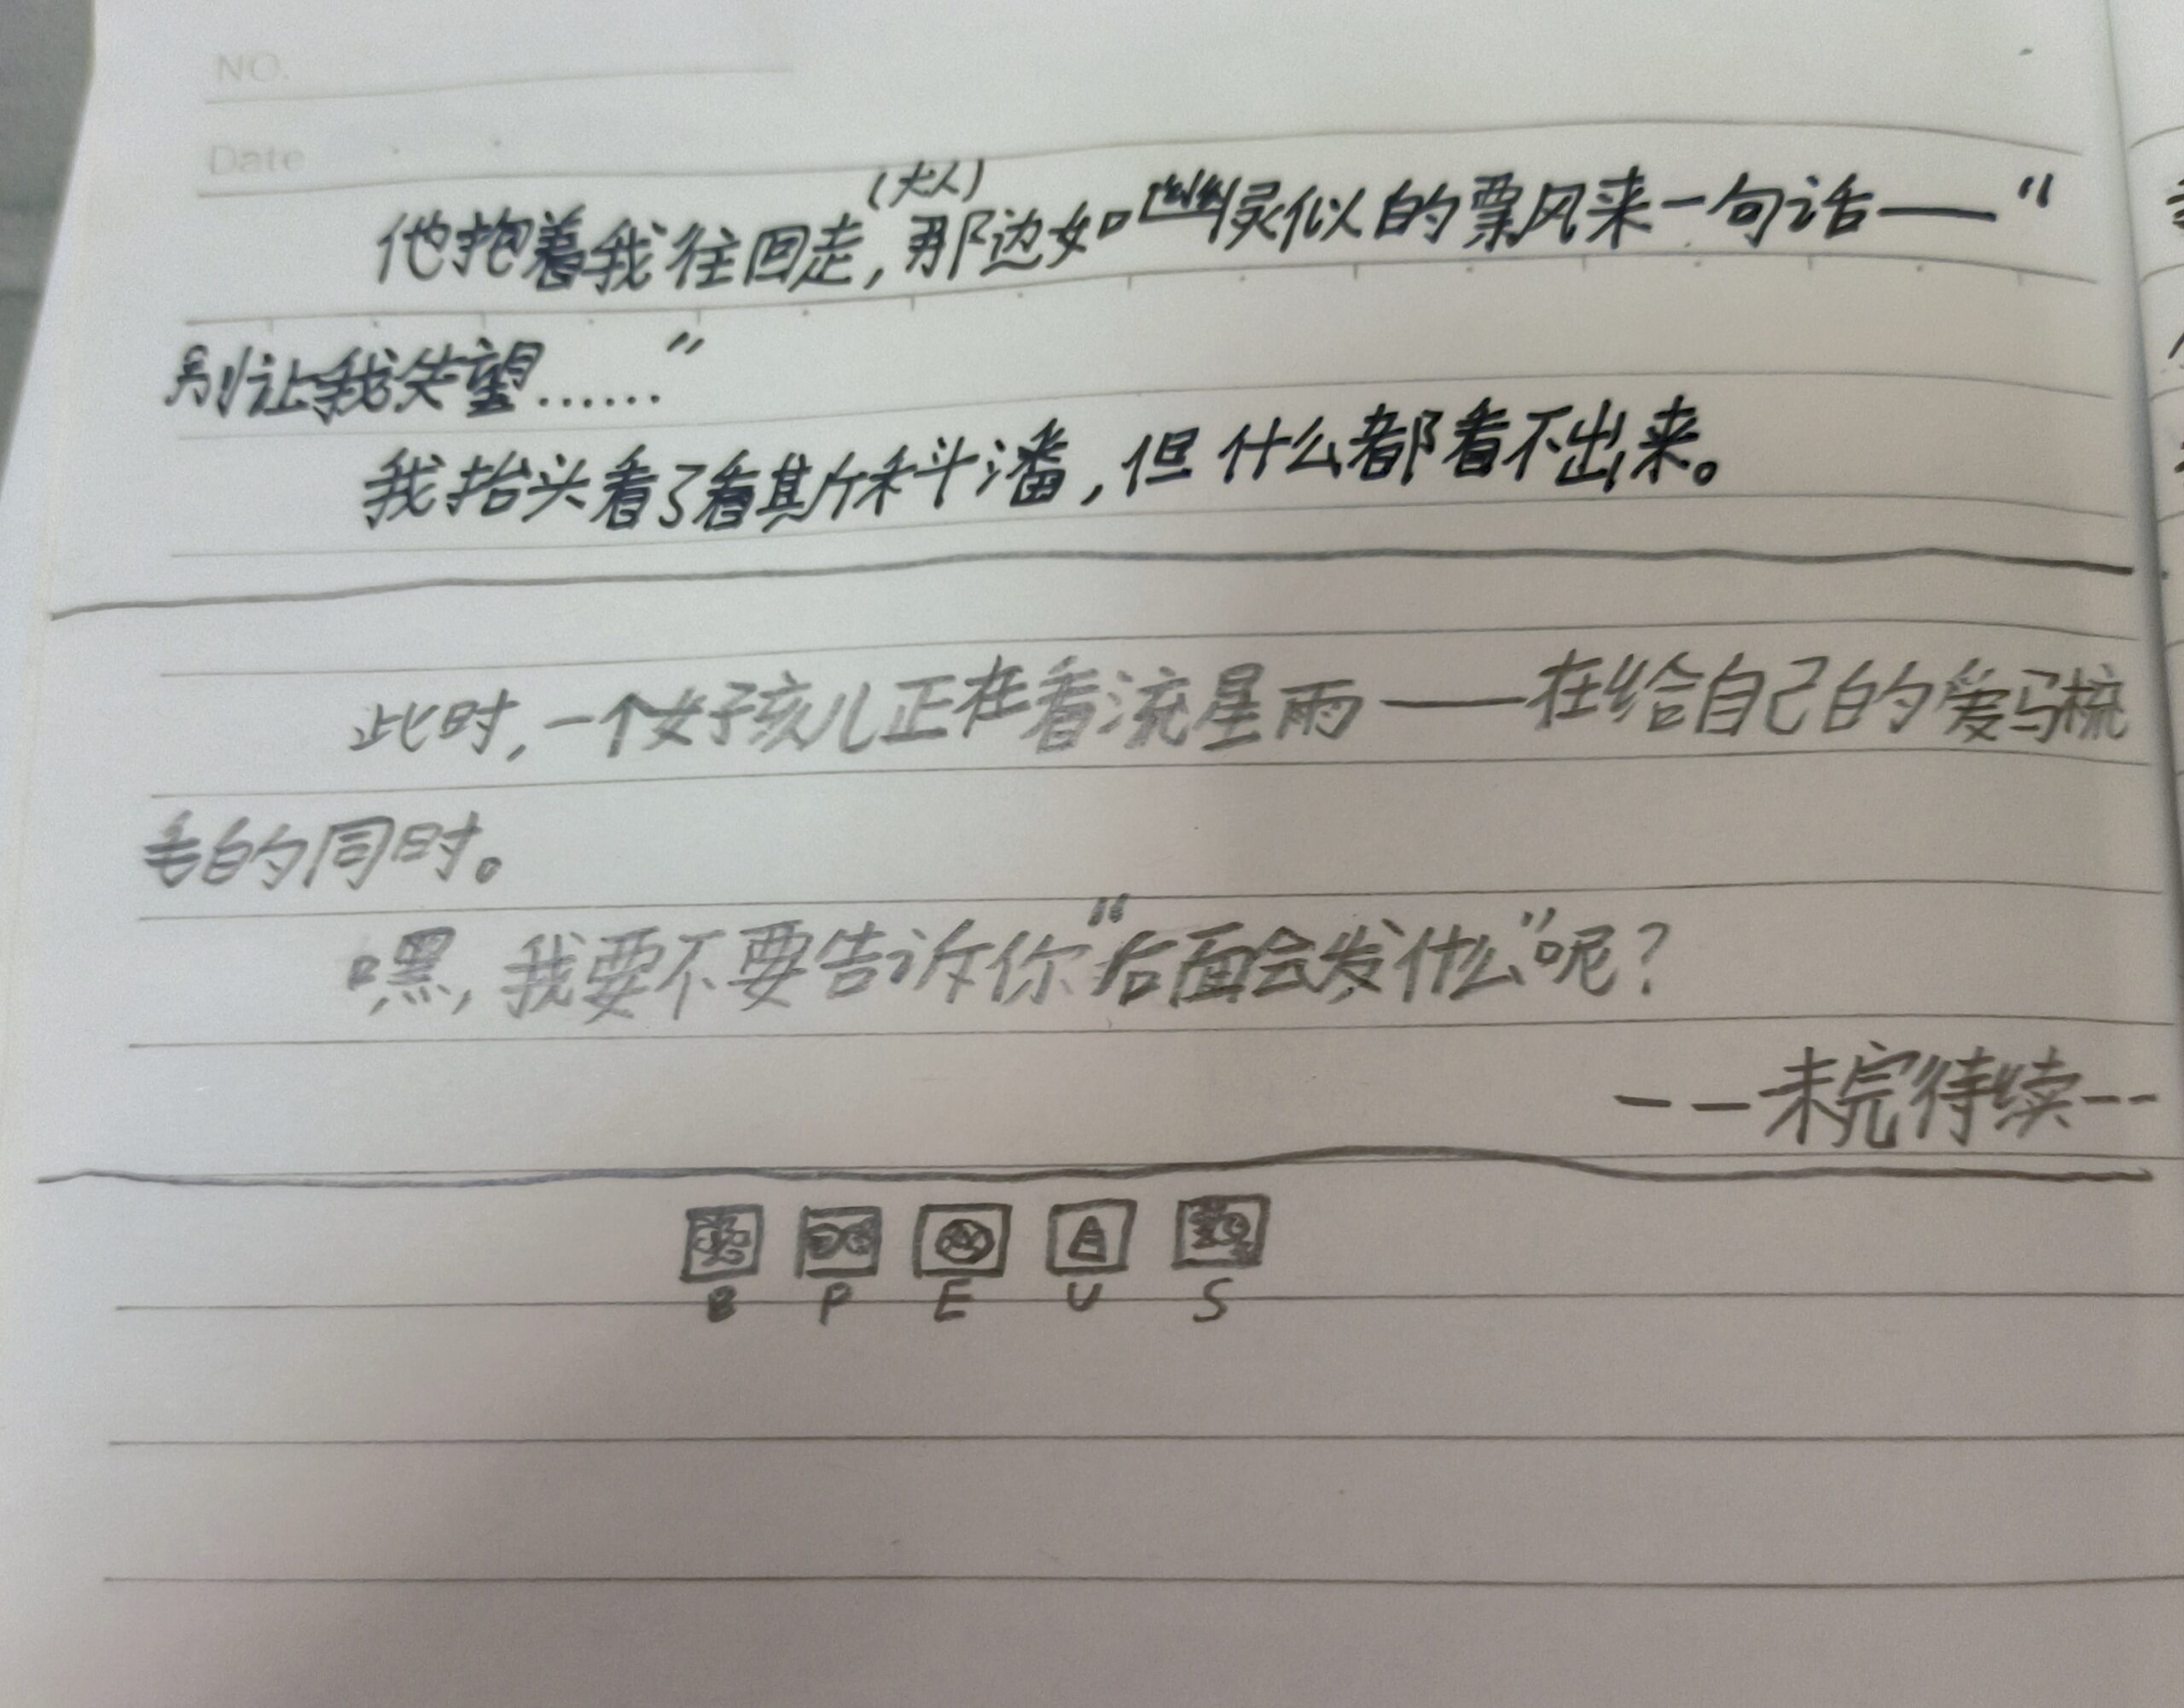 NO.
Date
(大人)
他抱着我往回走，那边如幽灵似的飘来一句话——“
别让我失望……”
我抬头看了看斯科斗潘，但什么都看不出来。
此时，一个女孩儿正在看流星雨——在给自己的爱马梳
毛的同时。
嘿，我要不要告诉你“后面会发什么”呢？
－－未完待续－－
B P E U S